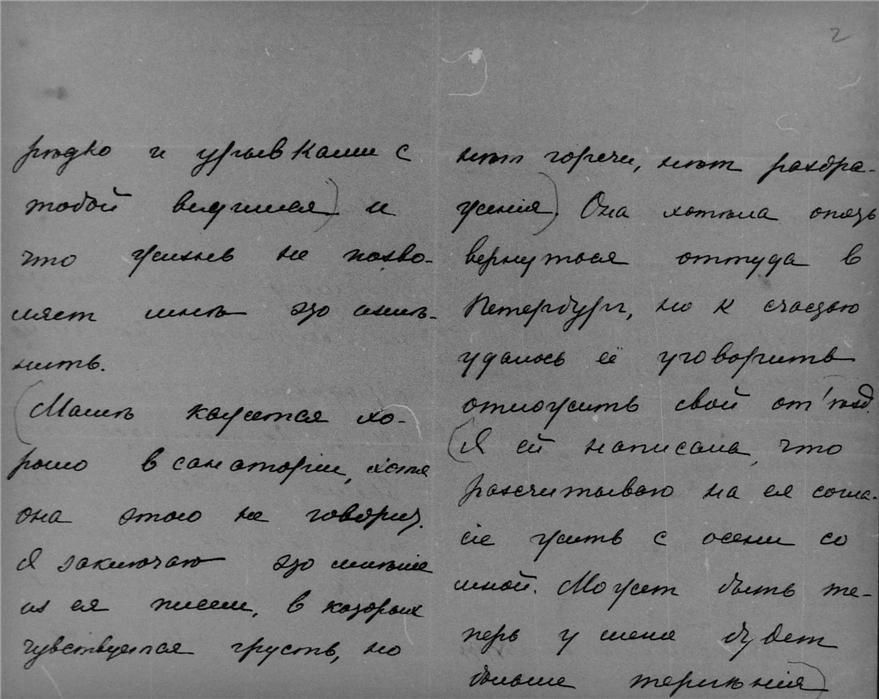 2
рѣдко и урывками с
тобой видишься) и
что жизнь не позво-
ляет мнѣ это измѣ-
нить.
(Машѣ кажется хо-
рошо в санаторіи, хотя
она этого не говорит.
Я заключаю это мнѣніе
из ея писем, в которых
чувствуется грусть, но
нѣт горечи, нѣт раздра-
женія). Она хотѣла опять
вернуться оттуда в
Петербург, но к счастью
удалось её уговорить
отложить свой от'ѣзд.
(Я ей написала, что
разсчитываю на ея согла-
сіе жить с осени со
мной. Может быть те-
перь у меня будет
больше терпѣнія)